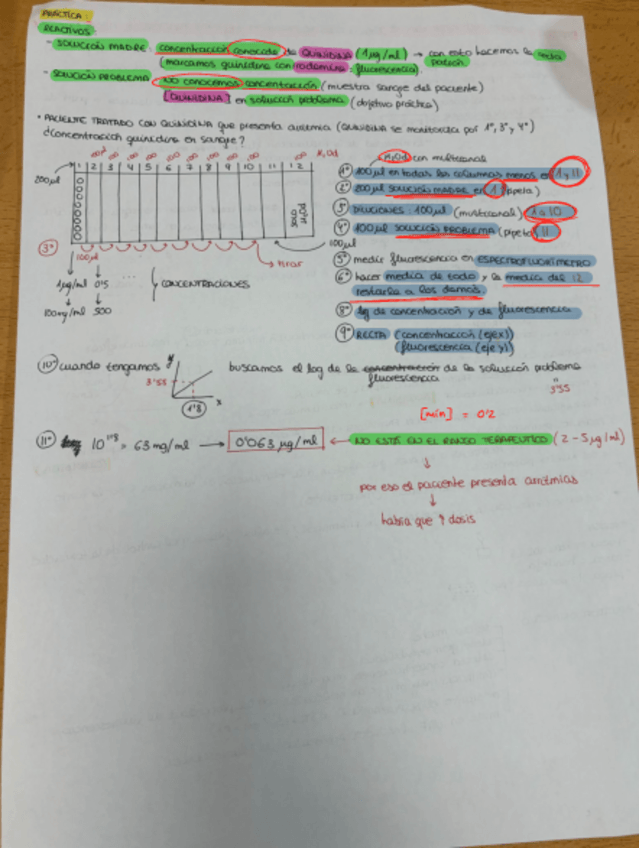 PRÁCTICA:
REACTIVOS
- SOLUCIÓN MADRE: concentración conocida de QUINIDINA (1 µg/ml) → con esto hacemos la recta patrón
(marcamos quinidina con rodamina: fluorescencia).
- SOLUCIÓN PROBLEMA: NO CONOCEMOS concentración (muestra sangre del paciente)
[QUINIDINA] en solución problema (objetivo práctica)
• PACIENTE TRATADO CON QUINIDINA que presenta arritmia (QUINIDINA se monitoriza por 1º, 3º y 4º)
¿Concentración quinidina en sangre?
100 µl 100 100 100 100 100 100 100 100 100 H2Od
1 2 3 4 5 6 7 8 9 10 11 12
200 µl
3º
100 µl
tirar
100 µl
1 µg/ml 0'5 ... CONCENTRACIONES
500
H2Od con multicanal
1º 100 µl en todas las columnas menos en 1 y 11
2º 200 µl SOLUCIÓN MADRE en 1 (pipeta)
3º DILUCIONES: 100 µl (multicanal) 1 a 10
4º 100 µl SOLUCIÓN PROBLEMA (pipeta) 11
5º medir fluorescencia en ESPECTROFLUORÍMETRO
6º hacer media de todo y la media del 12
restarla a los demás
8º lg de concentración y de fluorescencia
9º RECTA (concentración (eje x))
fluorescencia (eje y))
10º cuando tengamos y 3'55 1'8 x buscamos el log de la concentración de la solución problema
fluorescencia
3'55
[mín] = 0'2
11º 10^1'8 = 63 mg/ml → 0'063 µg/ml ← NO ESTÁ EN EL RANGO TERAPÉUTICO (2 - 5 µg/ml)
↓
por eso el paciente presenta arritmias
↓
habría que ↑ dosis